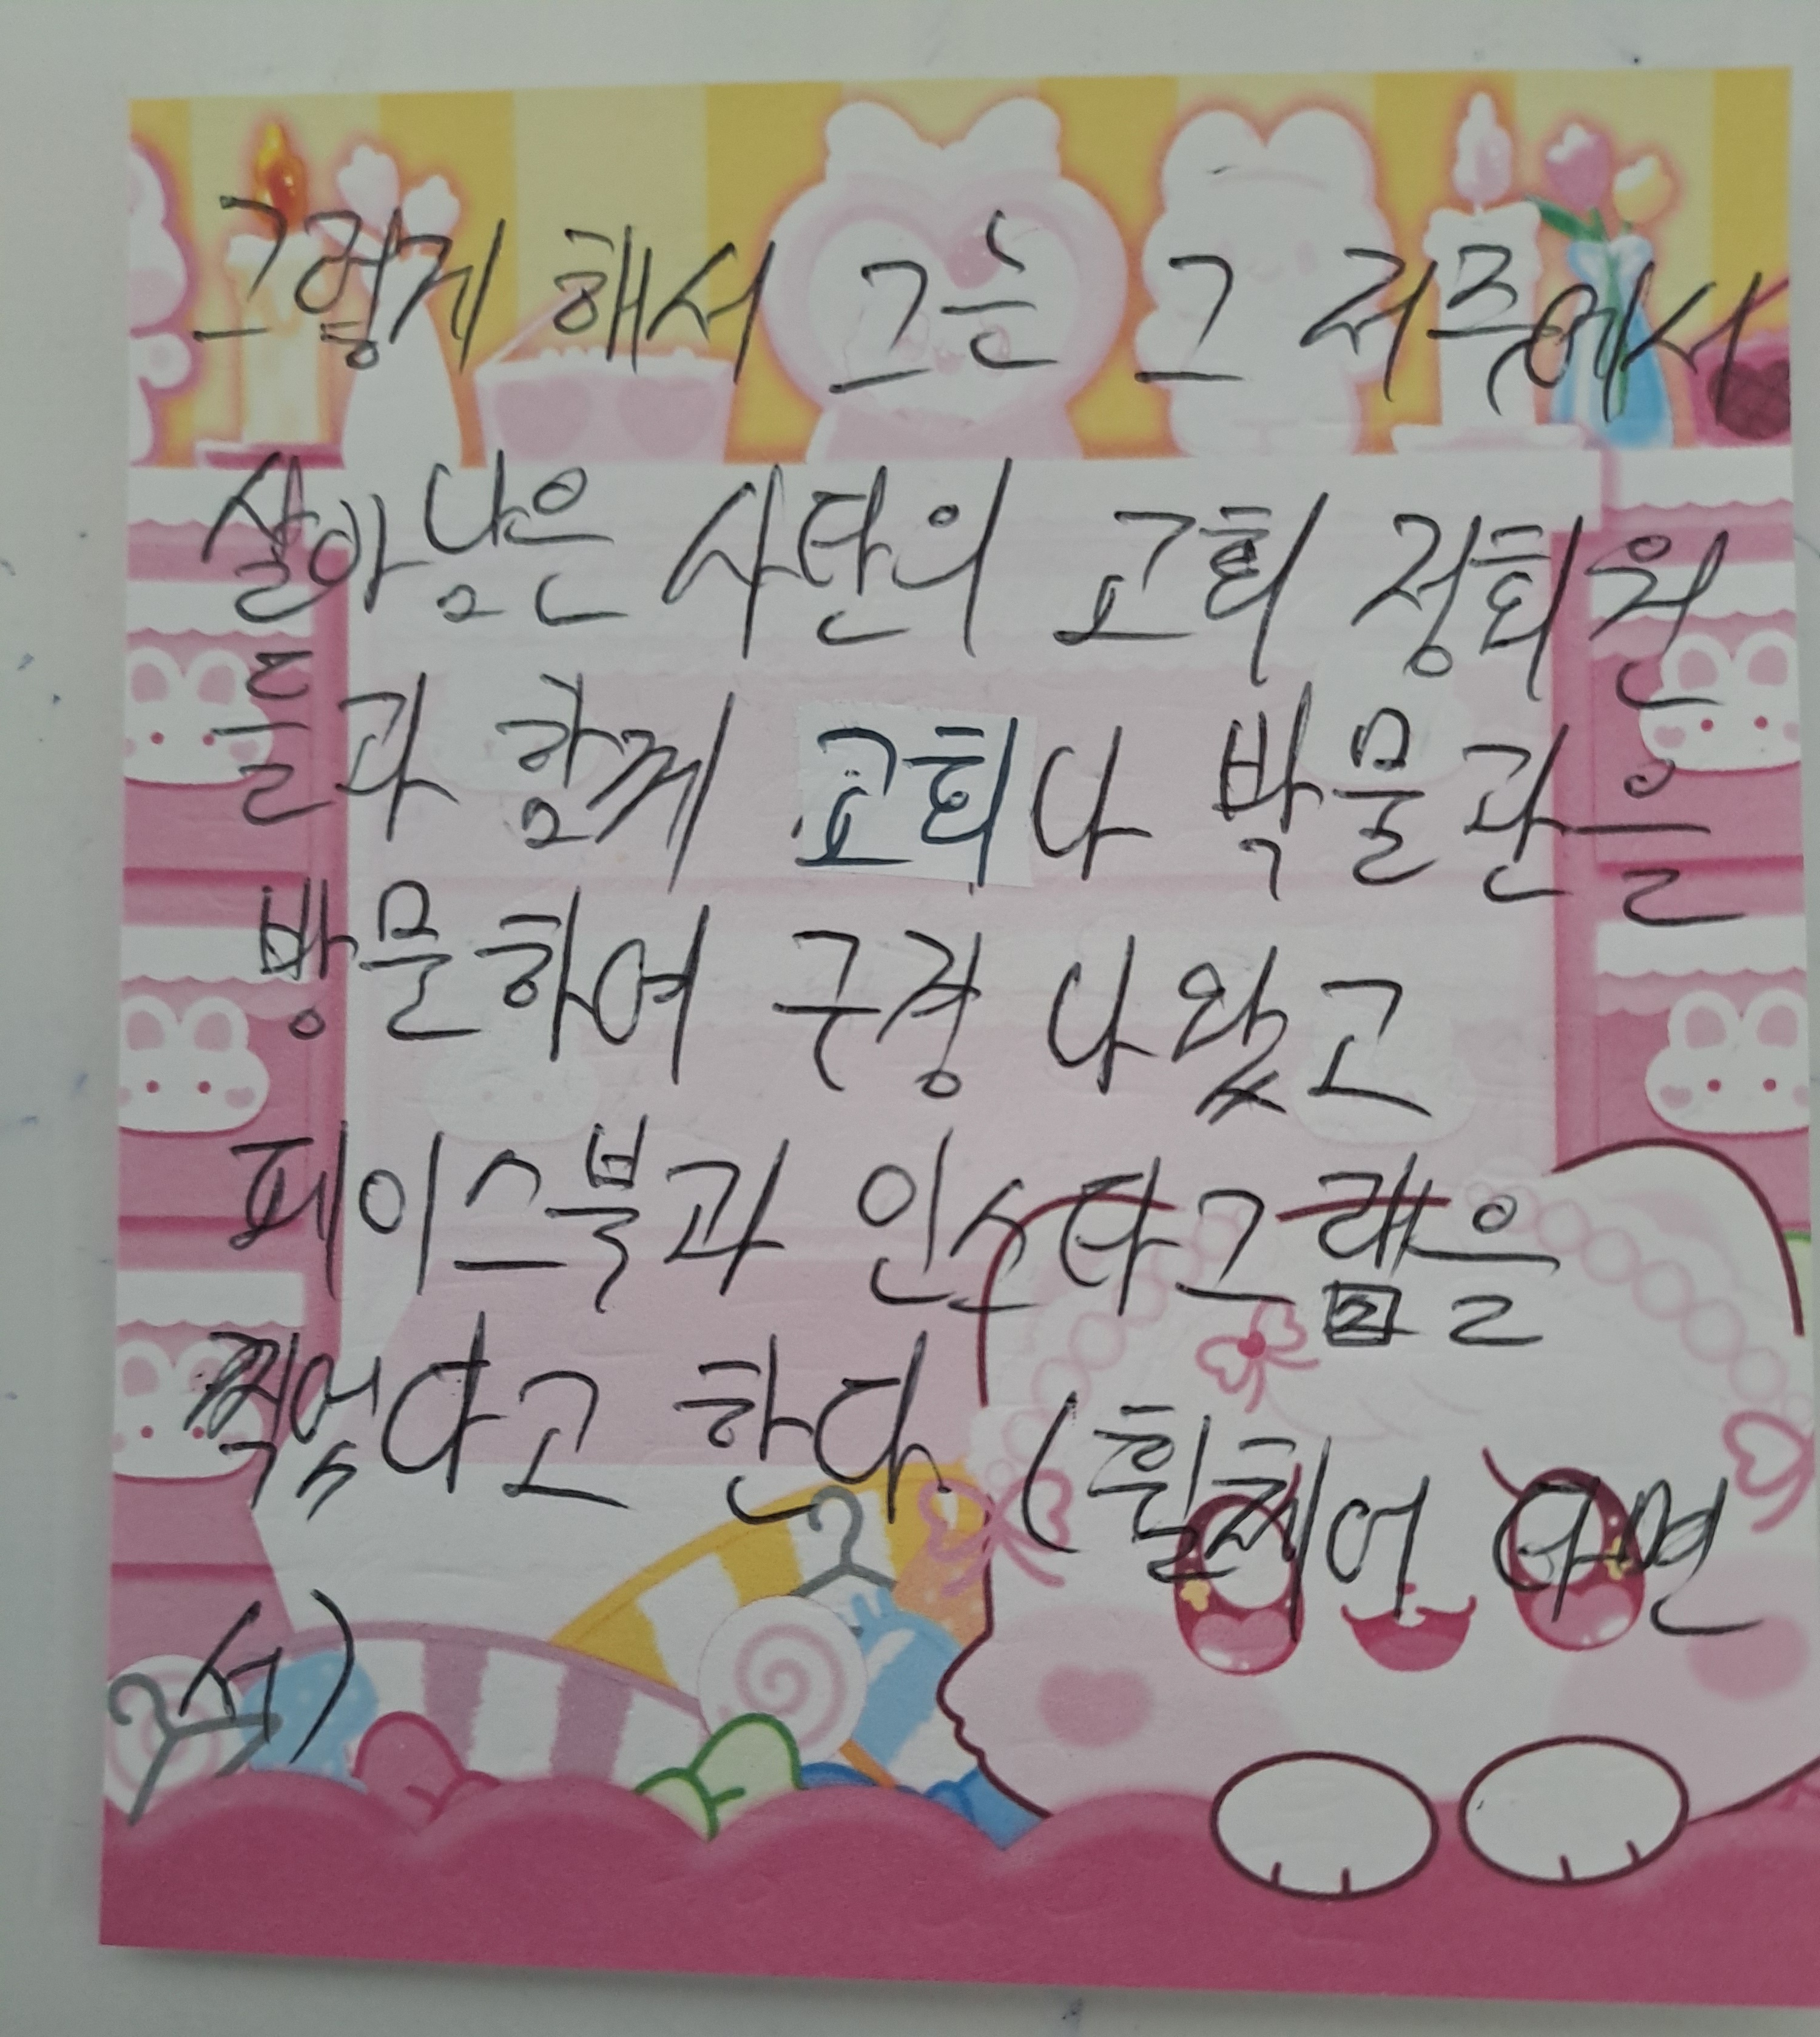 그렇게 해서 그는 그 저주에서
살아남은 사탄의 교회 정회원
들과 함께 교회나 박물관을
방문하여 구경 나왔고
페이스북과 인스타그램을
찍었다고 한다. (휠체어 타면
서)